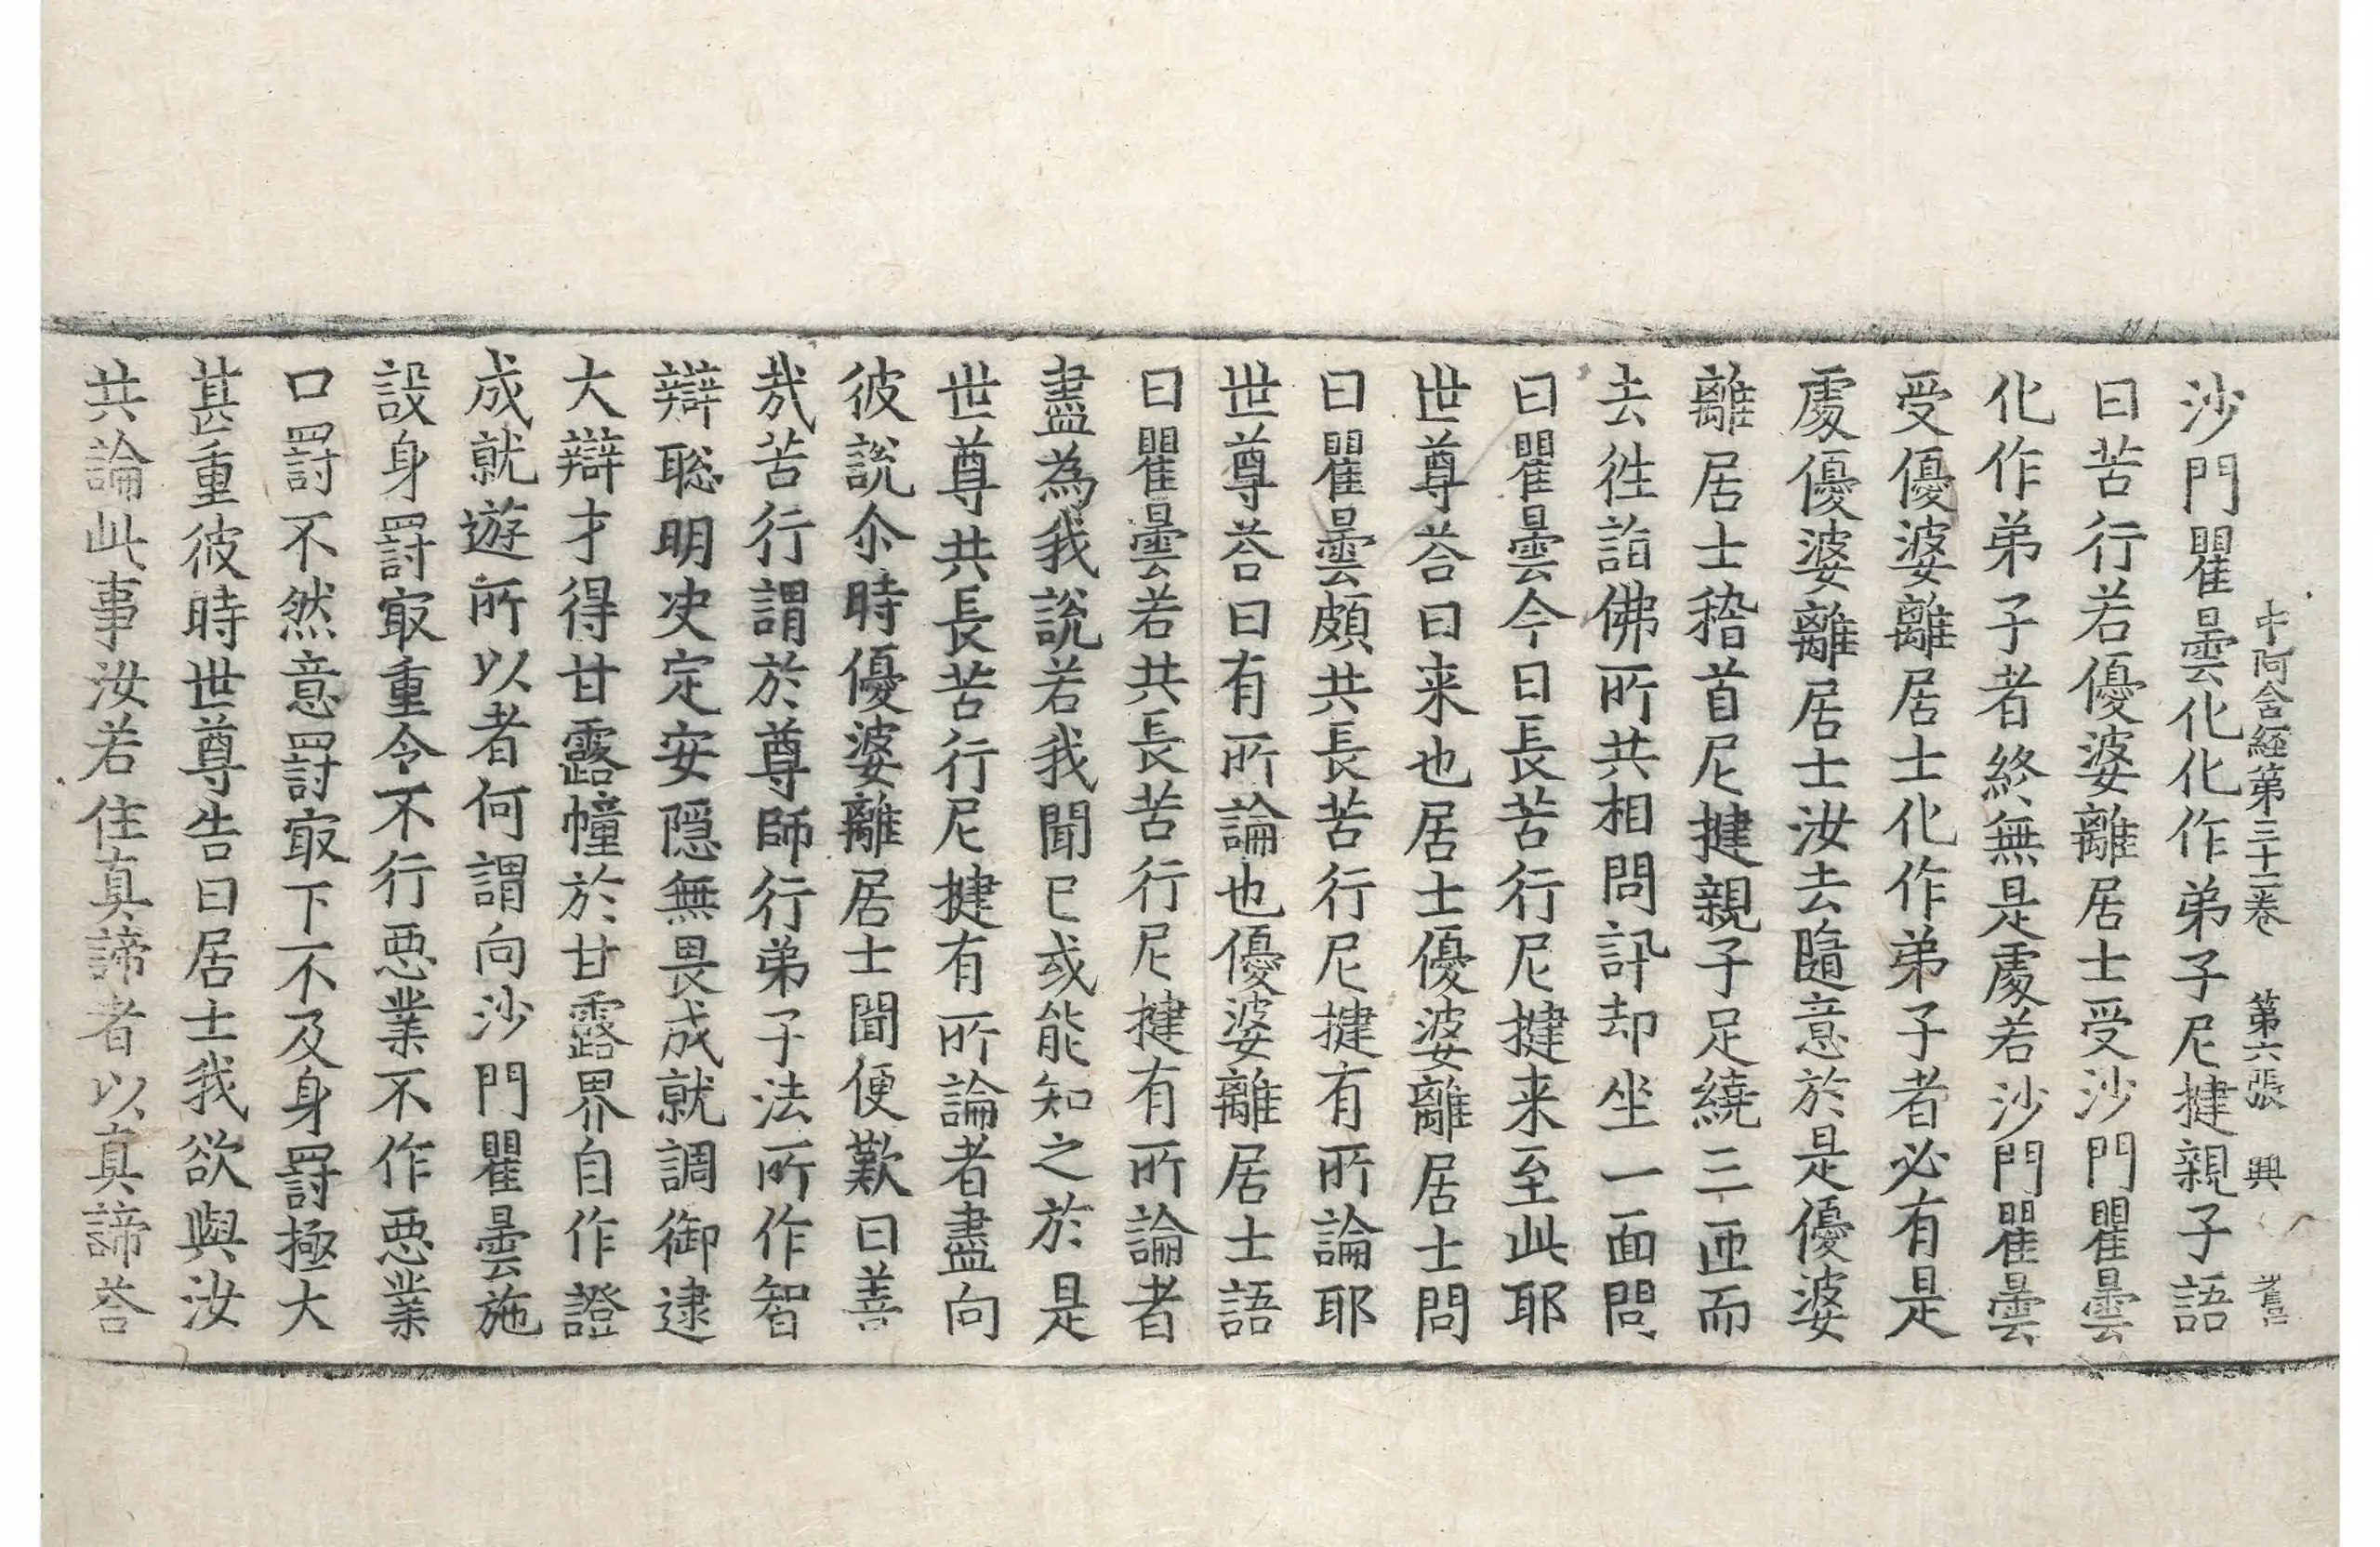 中阿含経第三十二卷 第六張 興
沙門瞿曇化化作弟子尼揵親子語
曰苦行若優婆離居士受沙門瞿曇
化作弟子者終無是處若沙門瞿曇
受優婆離居士化作弟子者必有是
處優婆離居士汝去隨意於是優婆
離居士稽首尼揵親子足繞三匝而
去徃詣佛所共相問訊却坐一面問
曰瞿曇今日長苦行尼揵来至此耶
世尊荅曰来也居士優婆離居士問
曰瞿曇頗共長苦行尼揵有所論耶
世尊荅曰有所論也優婆離居士語
曰瞿曇若共長苦行尼揵有所論者
盡為我説若我聞已或能知之於是
世尊共長苦行尼揵有所論者盡向
彼説尒時優婆離居士聞便歎曰善
㢤苦行謂於尊師行弟子法所作智
辯聡明决定安隠無畏成就調御逮
大辯才得甘露幢於甘露界自作證
成就遊所以者何謂向沙門瞿曇施
設身罰㝡重令不行惡業不作惡業
口罰不然意罰㝡下不及身罰極大
甚重彼時世尊告曰居士我欲與汝
共論此事汝若住真諦者以真諦荅